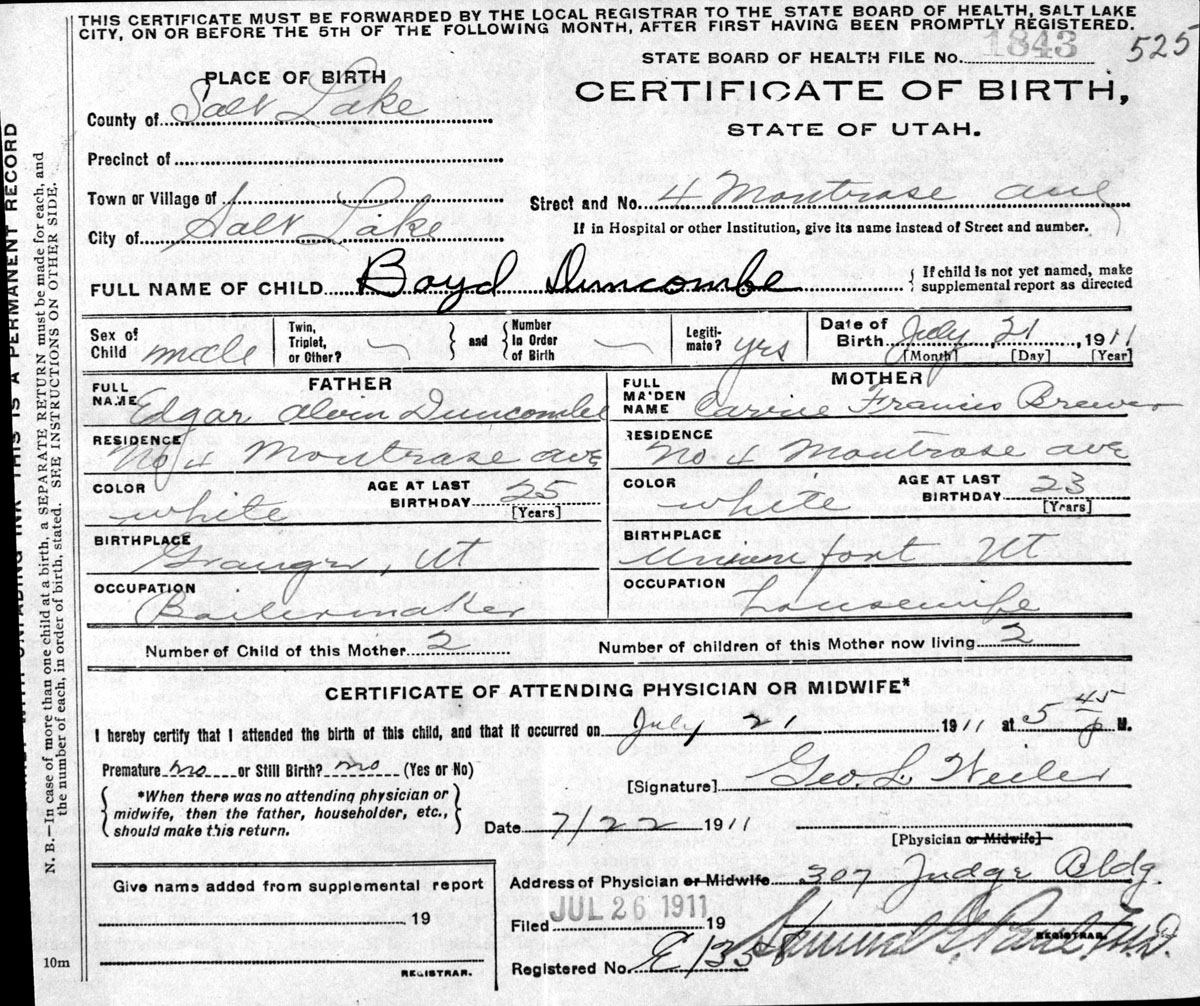 THIS CERTIFICATE MUST BE FORWARDED BY THE LOCAL REGISTRAR TO THE STATE BOARD OF HEALTH, SALT LAKE
CITY, ON OR BEFORE THE 5TH OF THE FOLLOWING MONTH, AFTER FIRST HAVING BEEN PROMPTLY REGISTERED.
STATE BOARD OF HEALTH FILE No. 1843 525
PLACE OF BIRTH
CERTIFICATE OF BIRTH,
STATE OF UTAH.
County of Salt Lake
Precinct of
Town or Village of
Street and No. 4 Montrose ave
City of Salt Lake
If in Hospital or other Institution, give its name instead of Street and number.
FULL NAME OF CHILD Boyd Duncombe
If child is not yet named, make
supplemental report as directed
Sex of Child male
Twin, Triplet, or Other?
and
Number In Order of Birth
Legiti-mate? yrs
Date of Birth July 21, 1911
[Month] [Day] [Year]
FATHER
MOTHER
FULL NAME Edgar Alvin Duncombe
FULL MAIDEN NAME Carine Francis Brewer
RESIDENCE No 4 Montrose ave
RESIDENCE No 4 Montrose ave
COLOR white
AGE AT LAST BIRTHDAY 25 [Years]
COLOR white
AGE AT LAST BIRTHDAY 23 [Years]
BIRTHPLACE Granger, UT
BIRTHPLACE Union fort UT
OCCUPATION Boilermaker
OCCUPATION housewife
Number of Child of this Mother 2
Number of children of this Mother now living 2
CERTIFICATE OF ATTENDING PHYSICIAN OR MIDWIFE*
I hereby certify that I attended the birth of this child, and that it occurred on July 21 1911 at 5 45 p M.
Premature no or Still Birth? no (Yes or No)
[Signature] Geo. L. Weiler
*When there was no attending physician or
midwife, then the father, householder, etc.,
should make this return.
Date 7/22 1911
[Physician or Midwife]
Give name added from supplemental report
19
REGISTRAR.
Address of Physician or Midwife 307 Judge Bldg.
Filed JUL 26 1911 19
REGISTRAR.
Registered No.
10m
THIS IS A PERMANENT RECORD
N. B.—In case of more than one child at a birth, a SEPARATE RETURN must be made for each, and
the number of each, in order of birth, stated. SEE INSTRUCTIONS ON OTHER SIDE.